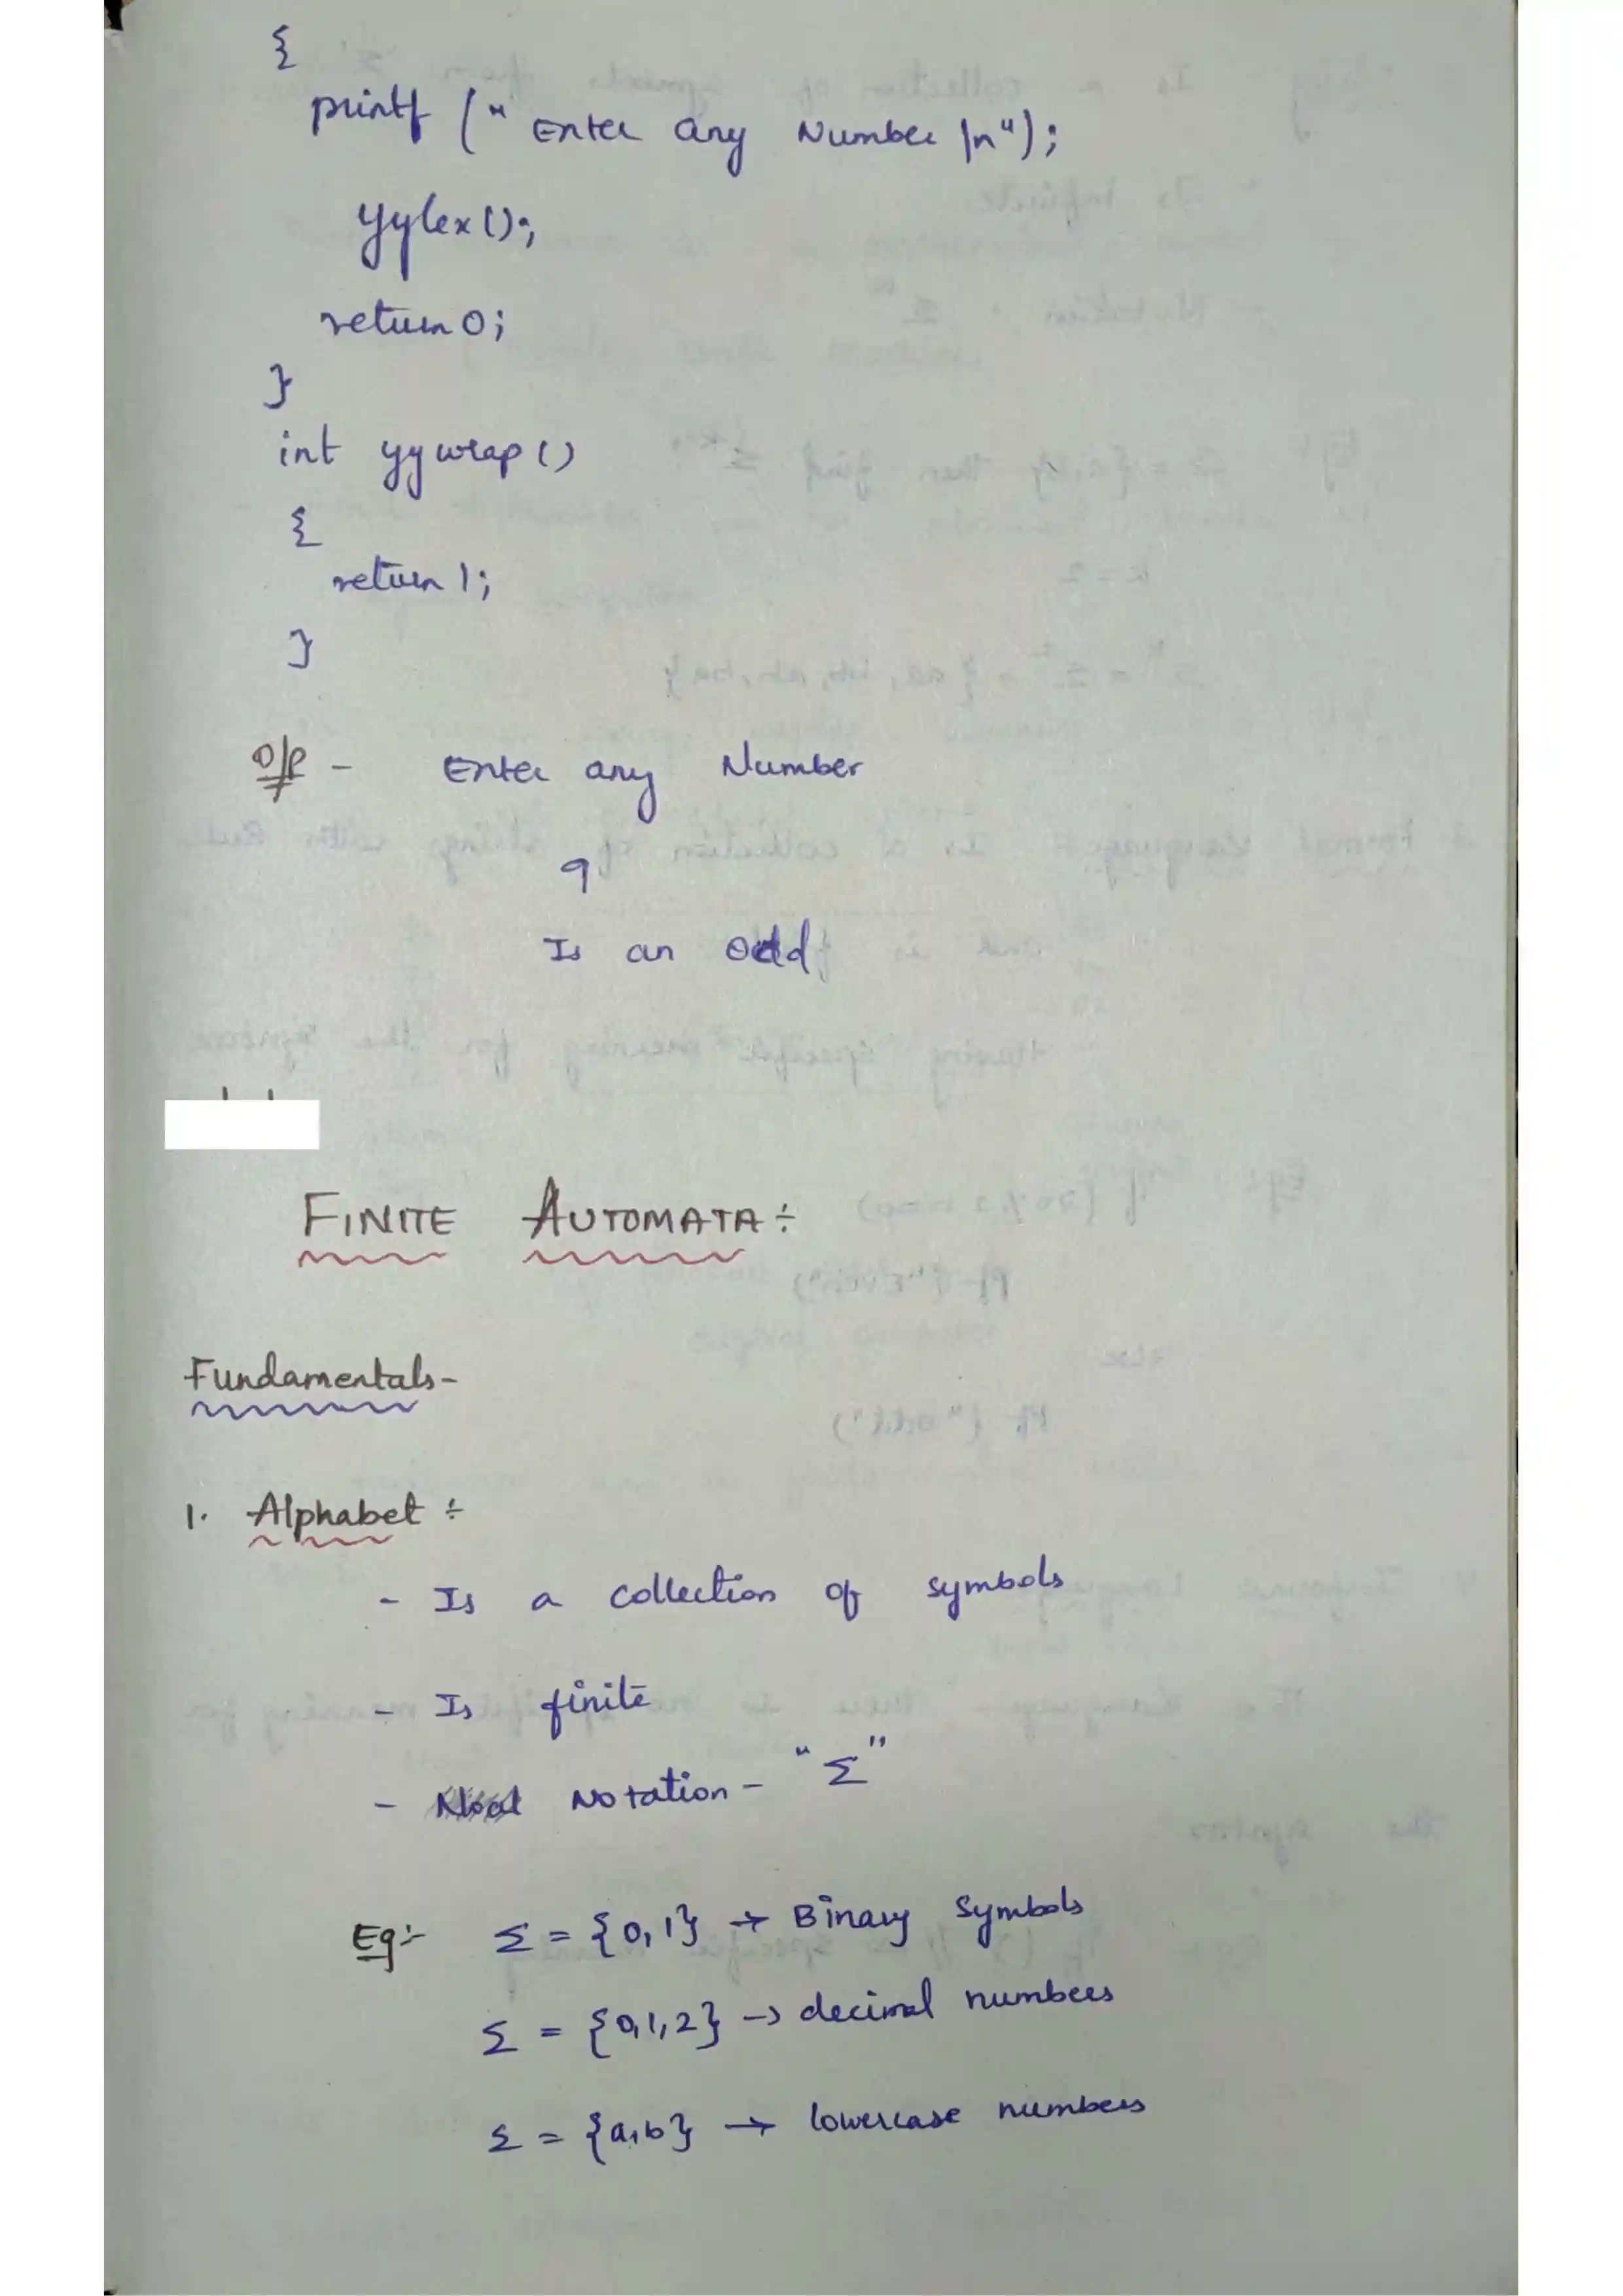 {
printf (" Enter any Number \n");
yylex();
return 0;
}
int yywrap()
{
return 1;
}
O/P - Enter any Number
9
Is an odd
FINITE AUTOMATA :
Fundamentals -
1. Alphabet :
- Is a collection of symbols
- Is finite
- Notation - "Σ"
Eg:- Σ = {0,1} → Binary Symbols
Σ = {0,1,2} → decimal numbers
Σ = {a,b} → lowercase numbers